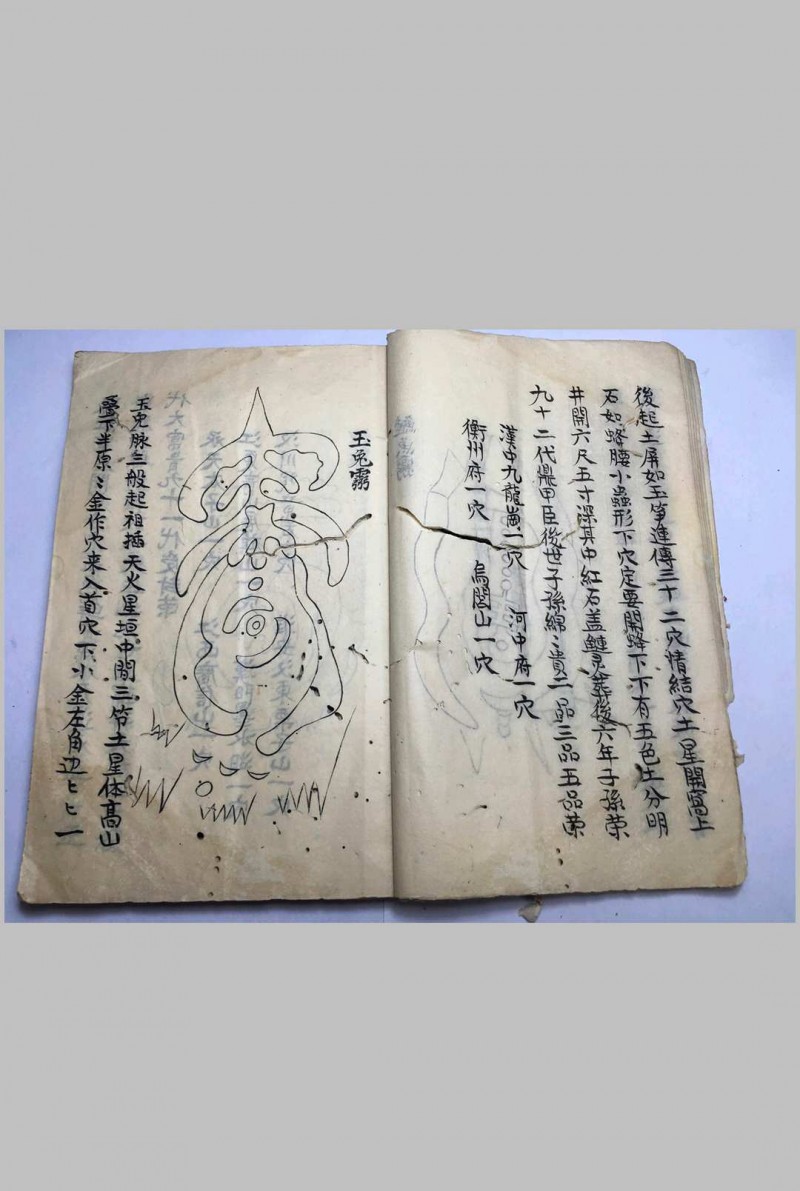 後起土屏如玉笋進傳三十二穴情結穴土星開窩上
石如蜂腰小蟲形下穴定要開蜂下下有五色土分明
井開六尺五寸深其中紅石盖鏈灵葬後六年子孫荣
九十二代鼎甲臣後世子孫綿〻貴二品三品五品荣
漢中九龍崗一穴 河中府一穴
衡州府一穴 烏閣山一穴
玉兎
玉兎脉三般起祖插天火星垣中間三笴土星体髙山
下半原〻金作穴来入首穴下小金左角边匕匕一